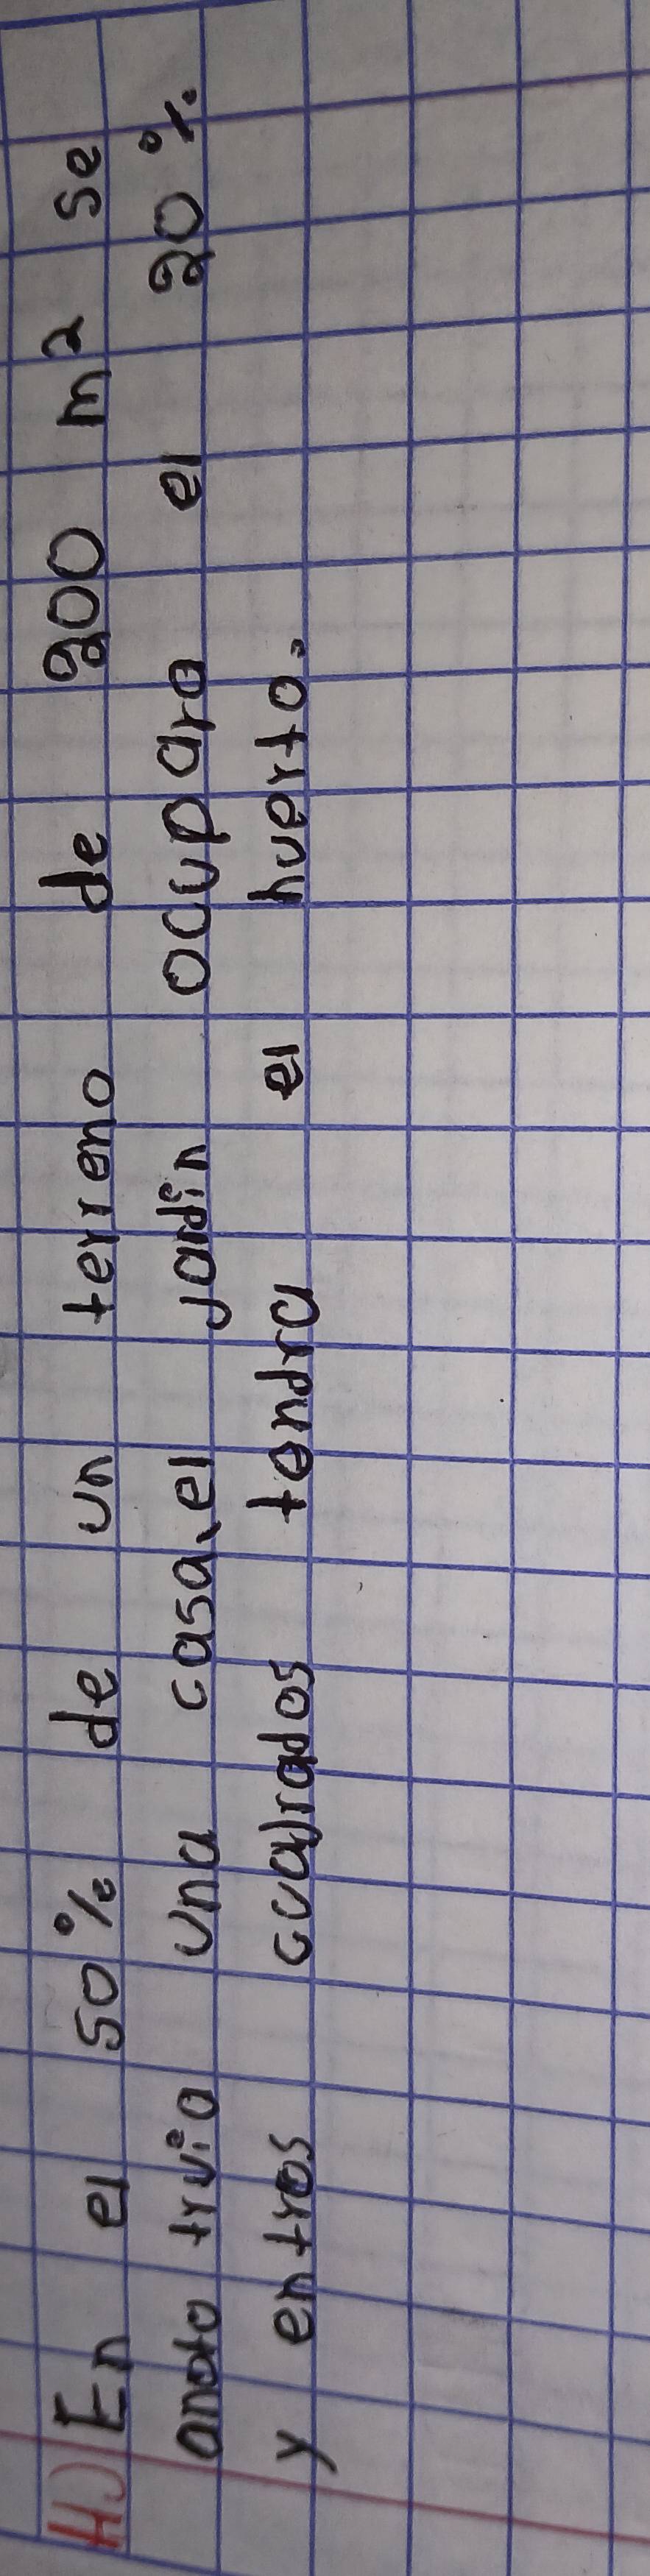 H) En el 50% de un terreno de 200 m² se
anoto truio una casa, el jardin ocupara el 20%
y entros cuadrados tendra el huerto.